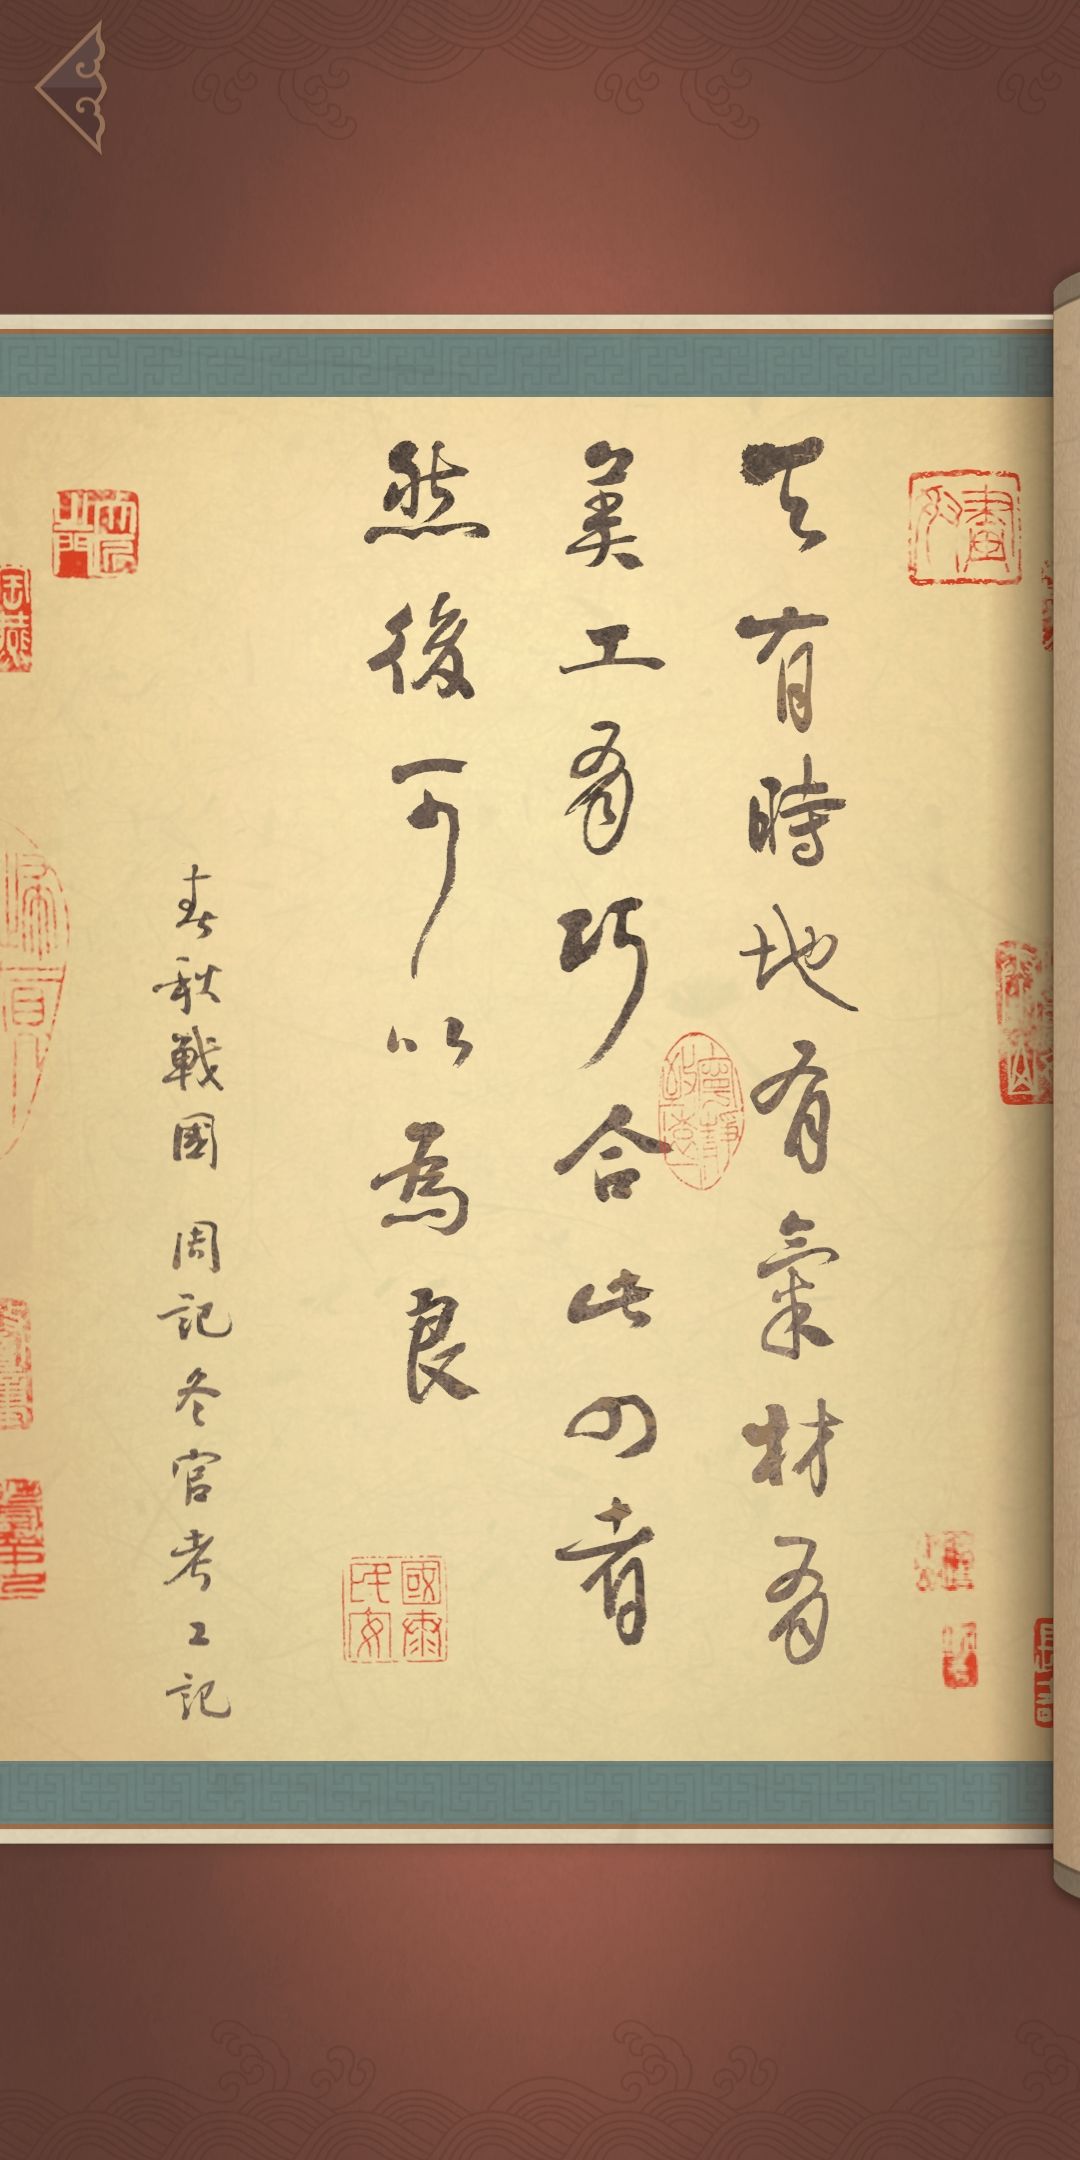 天有時地有氣材有
美工有巧合此四者
然後可以為良
春秋戰國 周記冬官考工記
國泰
民安